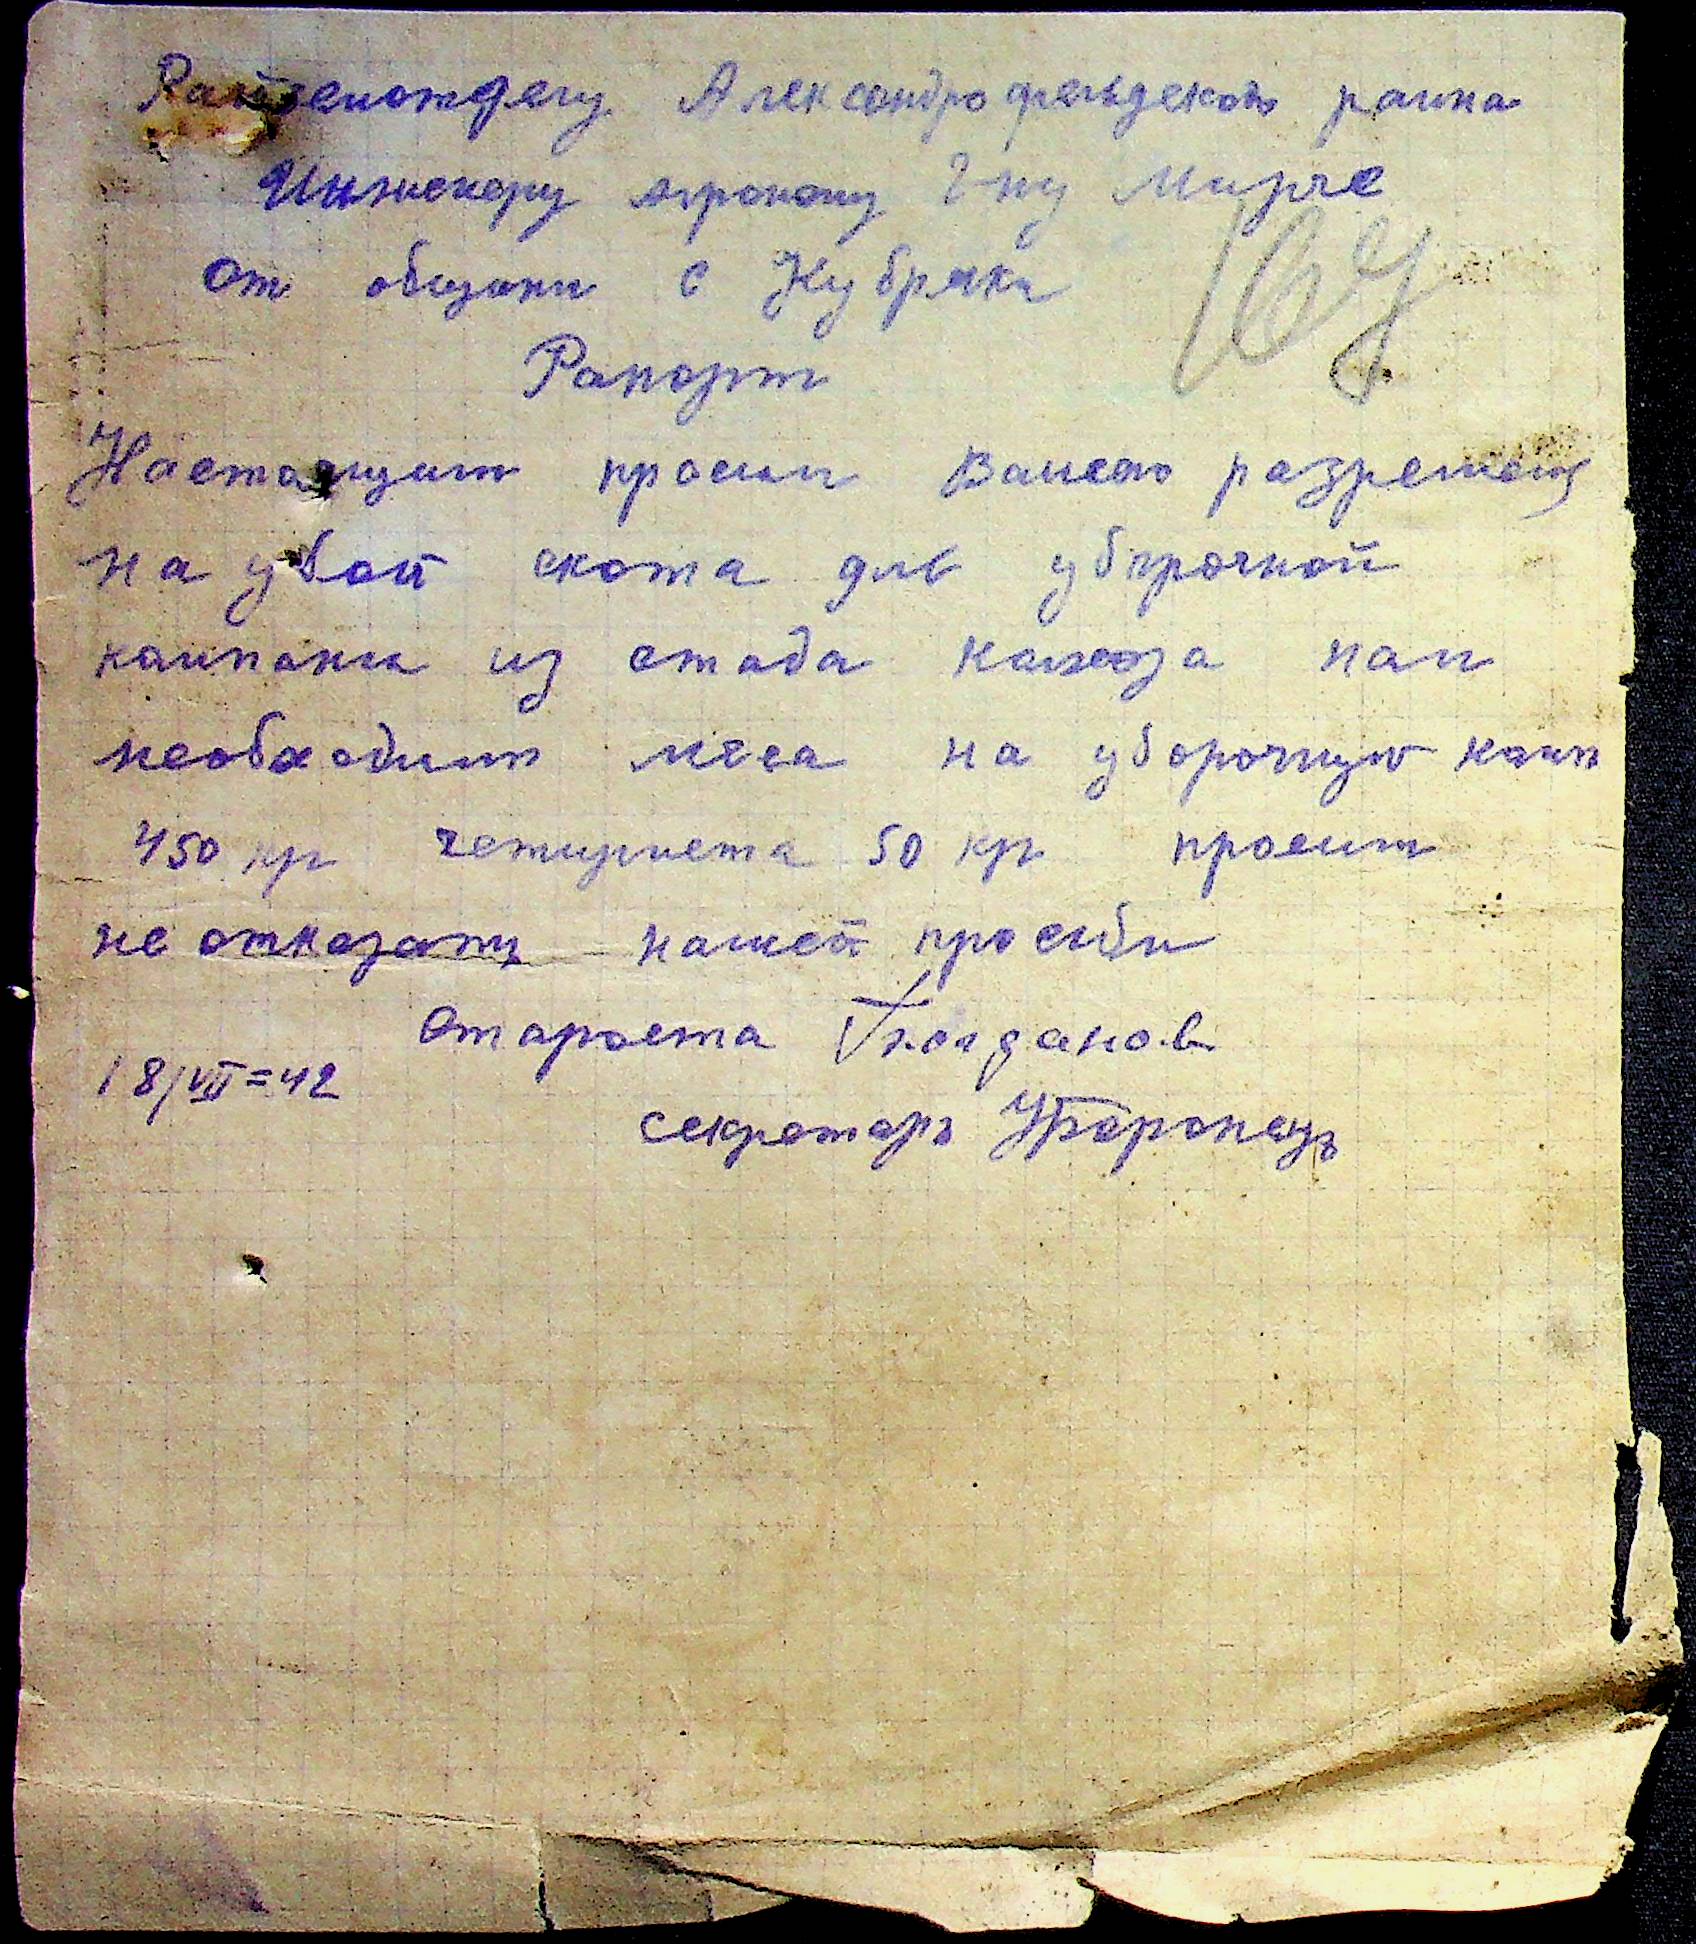 Райземотделу Александрофельдского раина
Инженеру агроному Г-ну Мирче
От общени с Кубряки
Рапорт
Настоящим просим Вашего разрешень
на убой скота для убпрочной
кампания из стада колхоза нам
необходимо мяса на уборочную камп
450 кгр четыриста 50 кгр просим
не отказать нашей просьби
Староста Богданов
18/VII=42
секретарь Таранець